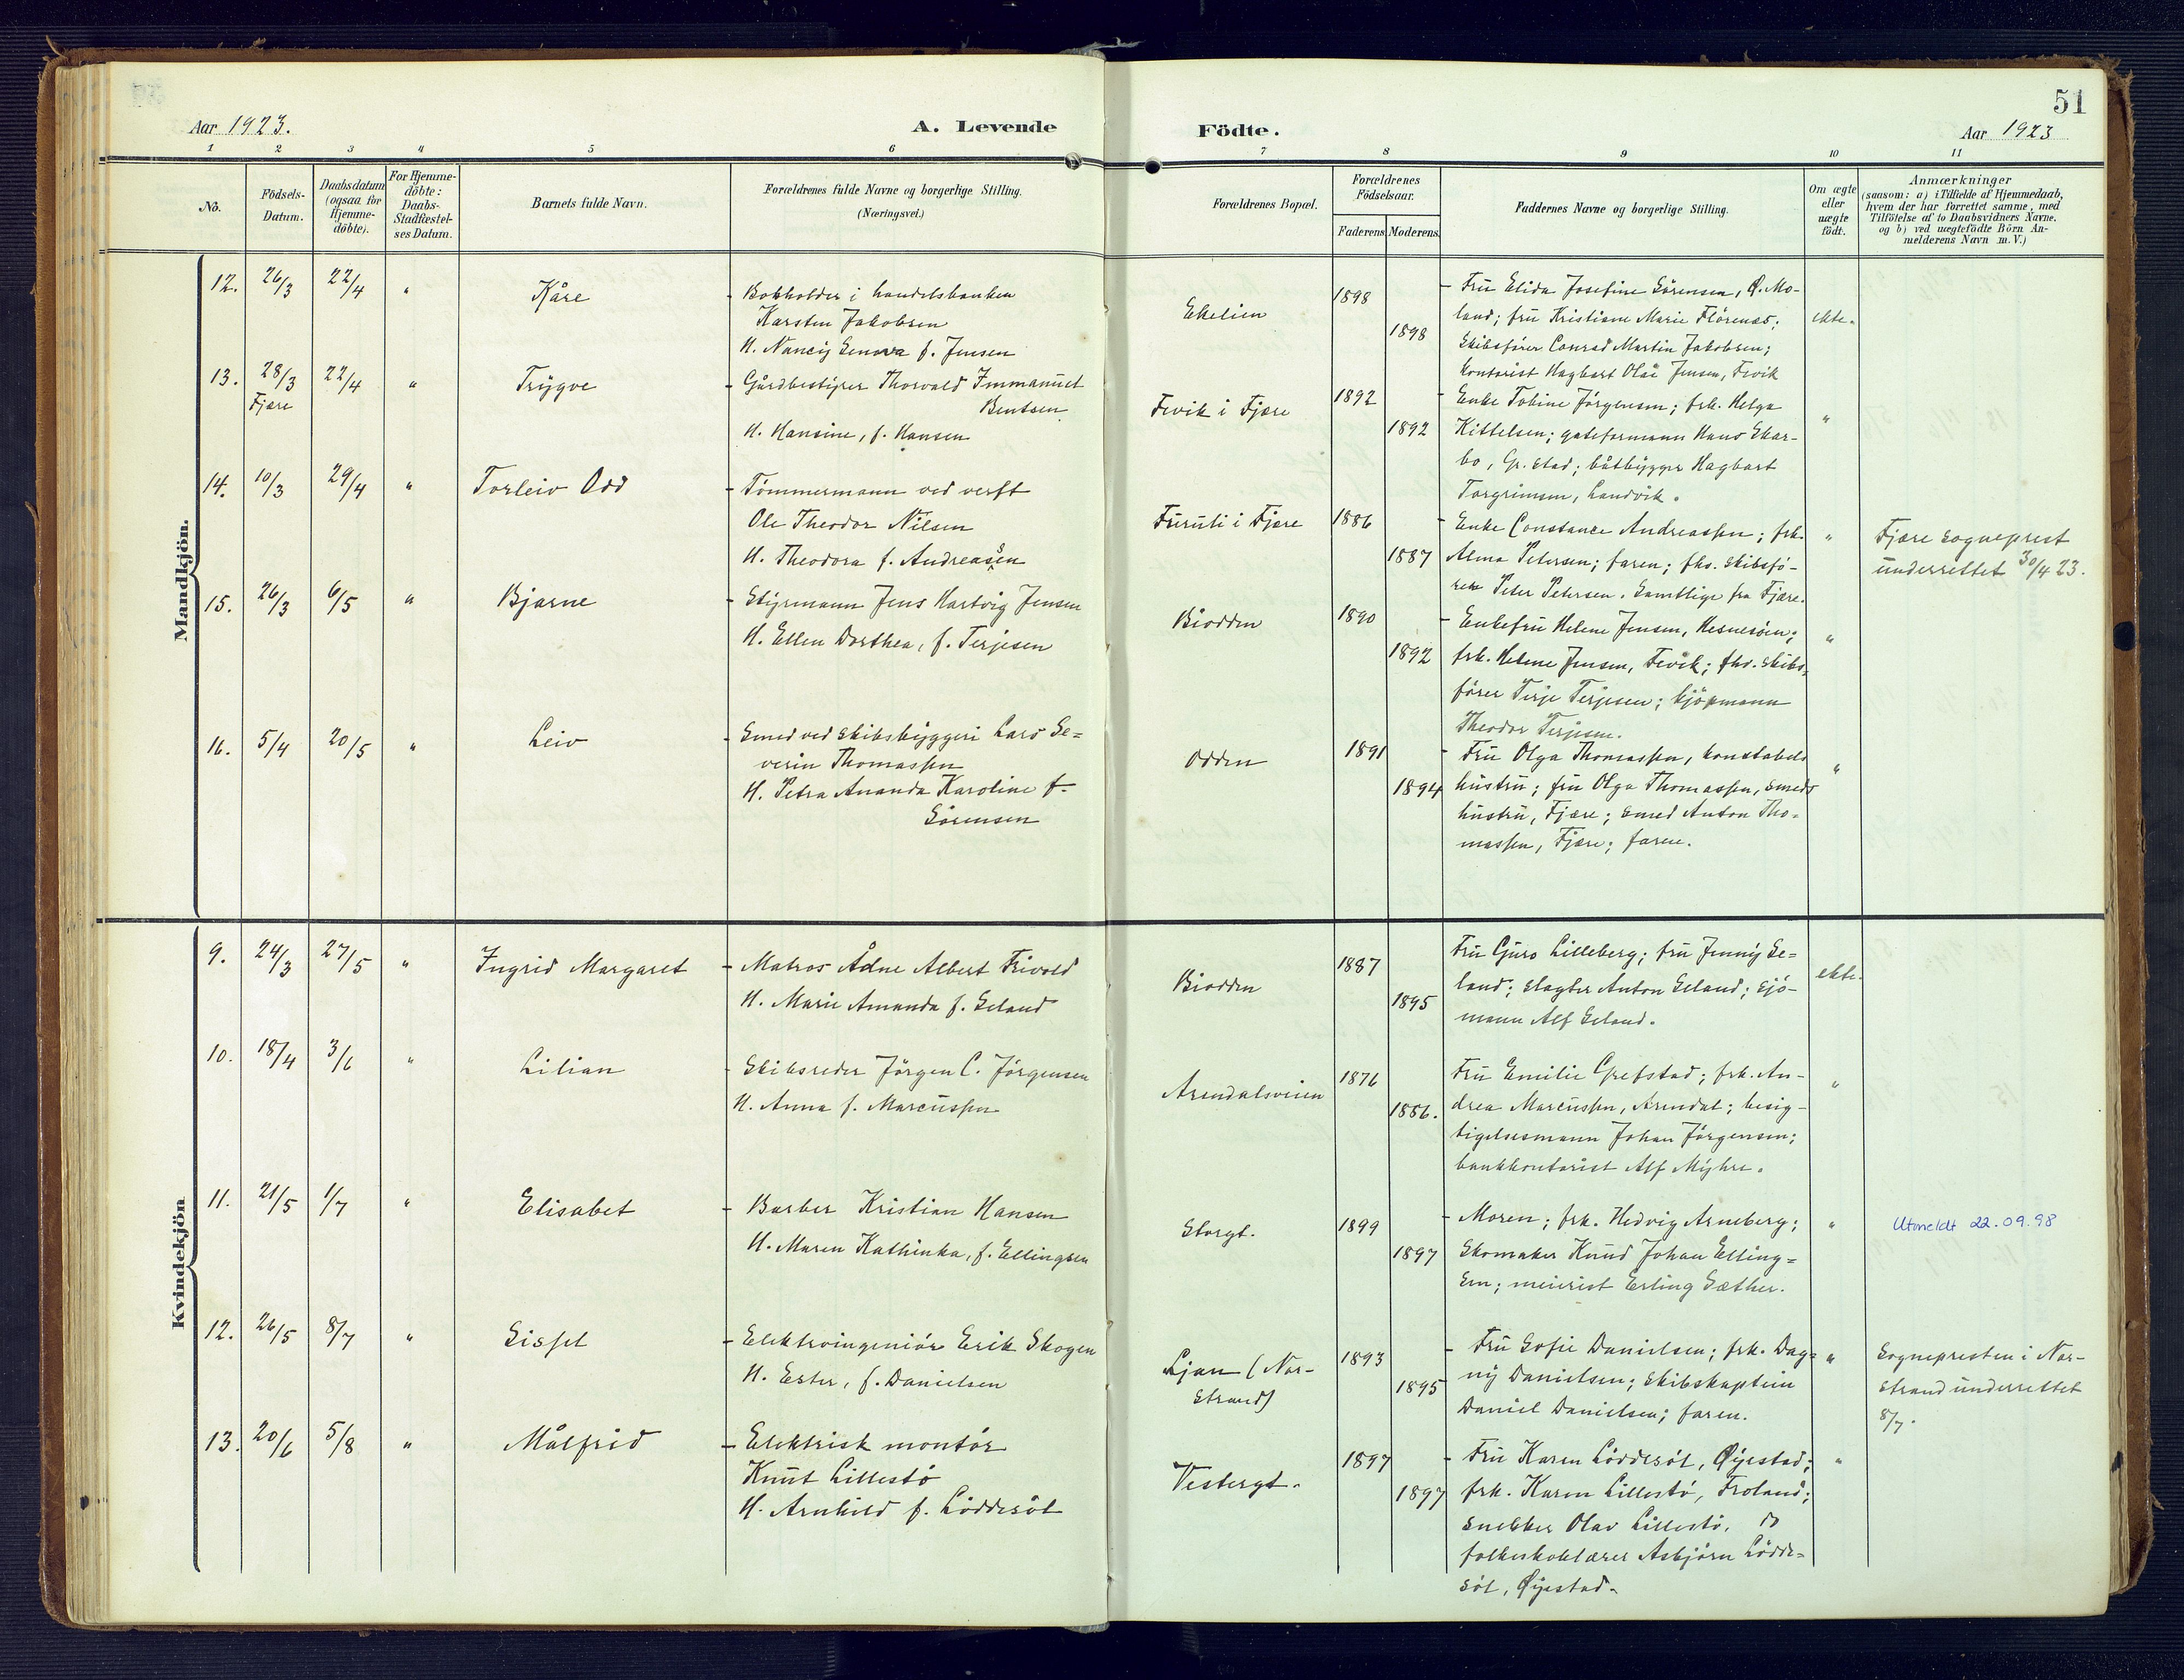 51
Aar 1923.
A. Levende
Födte.
Aar 1923
1 2 3 4 5 6 7 8 9 10 11
No.
Födsels-
Datum.
Daabsdatum
(ogsaa for
Hjemme-
döbte).
For Hjemme-
döbte:
Daabs-
Stadfæstel-
ses Datum.
Barnets fulde Navn.
Forældrenes fulde Navne og borgerlige Stilling.
(Næringsvei.)
Forældrenes Bopæl.
Forældrenes
Födselsaar.
Faderens. Moderens.
Faddernes Navne og borgerlige Stilling.
Om ægte
eller
uægte
födt.
Anmærkninger
(saasom: a) i Tilfælde af Hjemmedaab,
hvem der har forrettet samme, med
Tilföielse af to Daabsvidners Navne.
og b) ved uægtefödte Börn An-
melderens Navn m.V.)
Mandkjön.
12. 26/3 22/4 " Kåre
- Bokholder i handelsbanken
Karsten Jakobsen
H. Nancy Genova f. Jensen
Ekelien
1898
1898
- Fru Elida Josefine Sörensen, Ø. Mo-
land; fru Kristiane Marie Flörenæs;
Skibsfører Conrad Martin Jakobsen;
kontorist Hagbart Olai Jensen, Fevik
ekte.
13. 28/3 22/4 " Trygve
Fjære
- Gårdbestyrer Thorvald Immanuel
Bentsen
H. Hansine, f. Hansen
Fevik i Fjære
1892
1892
- Enke Tobine Jörgensen; frk. Helga
Kittelsen; gateformann Hans Skar-
bo, Gr.stad; båtbygger Hagbart
Torgrimsen, Landvik.
"
14. 10/3 29/4 " Torleiv Odd
- Tömmermann ved verft
Ole Theodor Nilsen
H. Theodora f. Andreassen
Furuli i Fjære
1886
1887
- Enke Constance Andreassen; frk.
Alma Petersen; faren; fhv. skibsfö-
rer Peter Petersen. Samtlige fra Fjære.
"
Fjære sogneprest
underrettet 30/4 23.
15. 26/3 6/5 " Bjarne
- Styrmann Jens Hartvig Jensen
H. Ellen Dorthea, f. Terjesen
Biodden
1890
1892
- Enkefru Helene Jensen, Hesnesöen;
frk. Helene Jensen, Fevik; fhv. skibs-
förer Terje Terjesen; kjöpmann
Theodor Terjesen.
"
16. 5/4 20/5 " Leiv
- Smed ved skibsbyggeri Lars Se=
verin Thomassen
H. Petra Ananda Karoline f.
Sörensen
Odden
1891
1894
- Fru Olga Thomassen, konstabels
hustru; fru Olga Thomassen, smeds
hustru, Fjære; smed Anton Tho-
massen, Fjære; faren.
"
Kvindekjön
9. 24/3 27/5 " Ingrid Margaret
- Matros Ådne Albert Frivold
H. Marie Amanda f. Seland
Biodden
1887
1895
Fru Guro Lilleberg; fru Jenny Se=
land; slagter Anton Seland; sjö-
mann Alf Seland.
ekte.
10. 18/4 3/6 " Lilian
- Skibsreder Jörgen C. Jörgensen
H. Anna f. Marcussen
Arendalsveien
1876
1886.
Fru Emilie Grefstad; frk. An-
drea Marcussen, Arendal; besig-
tigelsesmann Johan Jörgensen;
bankkontorist Alf Myhre.
"
11. 21/5 1/7 " Elisabet
- Barber Kristian Hansen
H. Maren Kathinka, f. Ellingsen
Storgt.
1899
1897
- Moren; frk. Hedvig Arneberg;
Skomaker Knud Johan Elling=
sen; meierist Erling Sæther.
"
Utmeldt 22.09.98
12. 26/5 8/7 " Sissel
- Elektroingeniör Erik Skogen
H. Ester, f. Danielsen
Ljan (Nor-
strand)
1893
1895
- Fru Sofie Danielsen; frk. Dag=
ny Danielsen; Skibskaptein
Daniel Danielsen; faren.
"
Sognepresten i Nor-
strand underrettet
8/7.
13. 20/6 5/8 " Målfrid
- Elektrisk montör
Knut Lillestö
H. Arnhild f. Löddesöl
Vestergt.
1897
1897
- Fru Karen Löddesöl, Øyestad;
frk. Karen Lillestö, Froland;
snekker Olav Lillestö, do
folkeskolelærer Asbjörn Lödde=
söl, Øyestad.
"